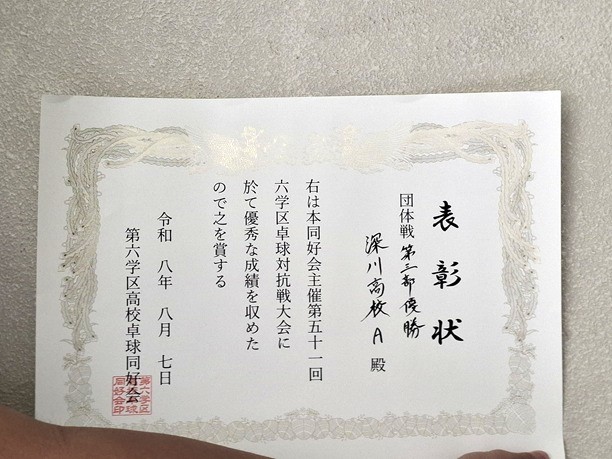 表彰状
団体戦 第三部優勝
深川高校 A 殿
右は本同好会主催第五十一回
六学区卓球対抗戦大会に
於て優秀な成績を収めた
ので之を賞する
令和 八年 八月 七日
第六学区高校卓球同好会
第六学区
同好会印